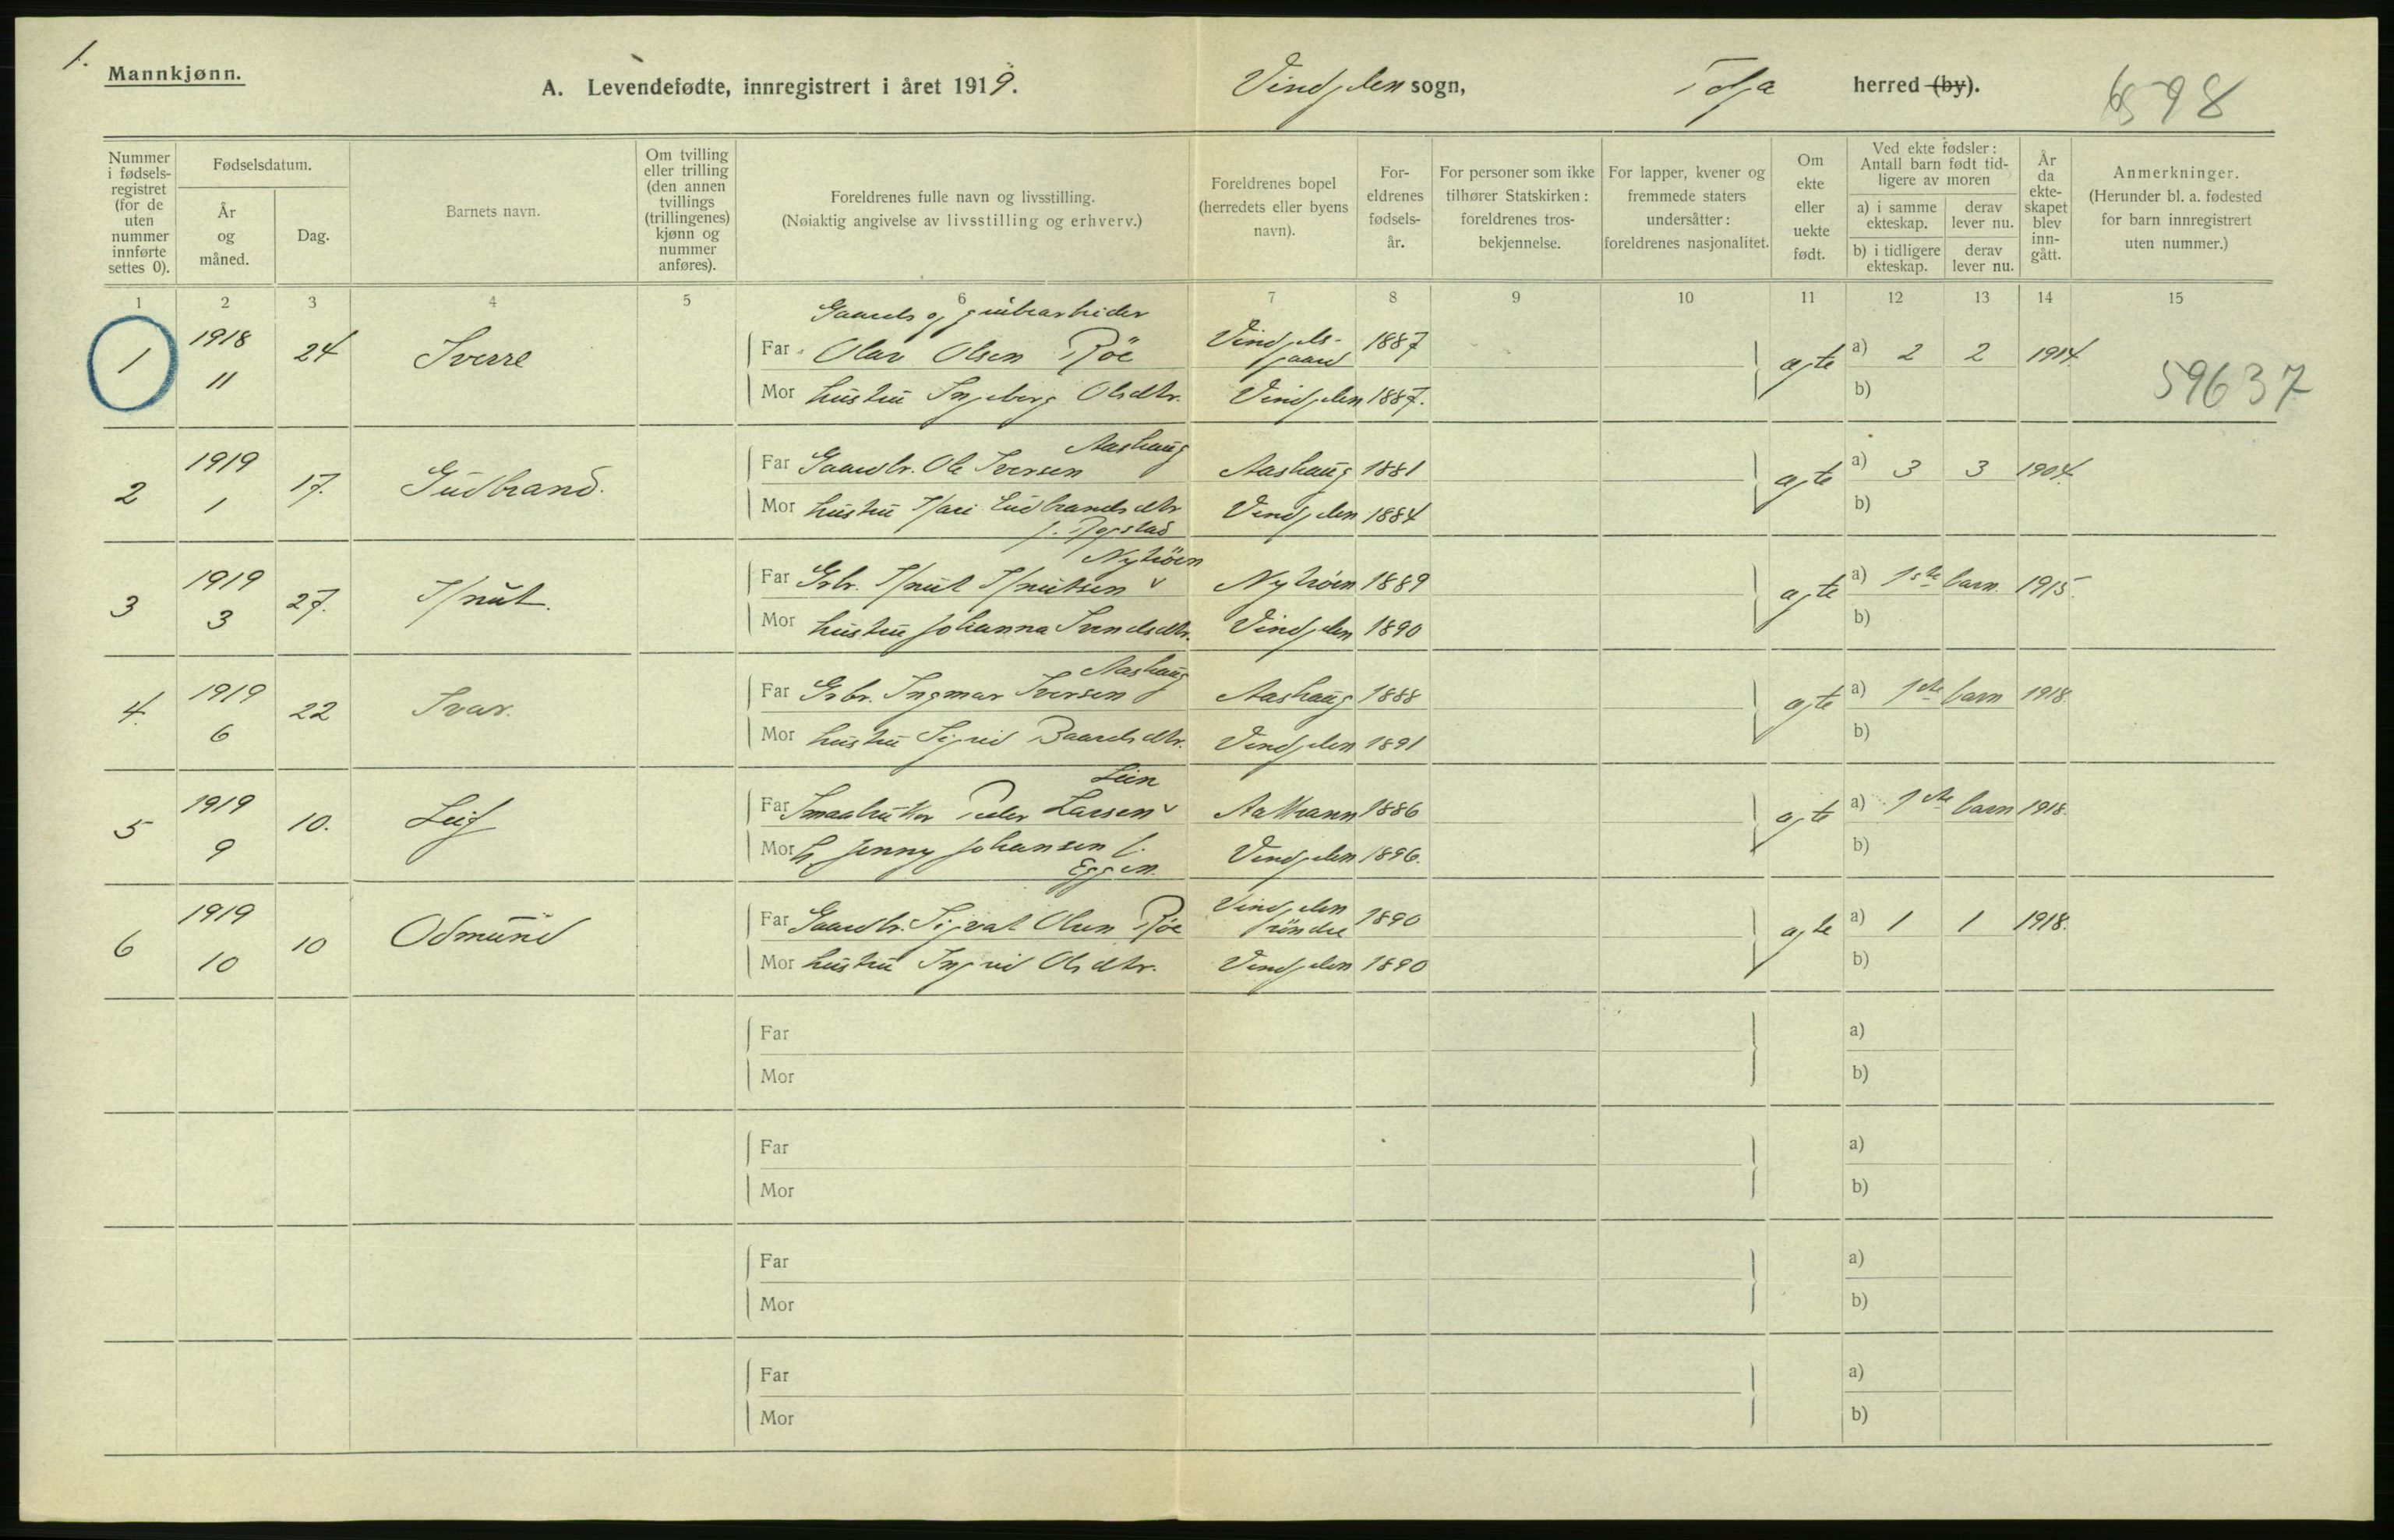 1.
Mannkjønn.
A. Levendefødte, innregistrert i året 1919.
Vingelen sogn,
Tolga herred (by).
6598
Nummer i fødselsregistret (for de uten nummer innførte settes 0).
Fødselsdatum.
År og måned.
Dag.
Barnets navn.
Om tvilling eller trilling (den annen tvillings (trillingenes) kjønn og nummer anføres).
Foreldrenes fulle navn og livsstilling.
(Nøiaktig angivelse av livsstilling og erhverv.)
Foreldrenes bopel (herredets eller byens navn).
Foreldrenes fødselsår.
For personer som ikke tilhører Statskirken: foreldrenes trosbekjennelse.
For lapper, kvener og fremmede staters undersåtter: foreldrenes nasjonalitet.
Om ekte eller uekte født.
Ved ekte fødsler: Antall barn født tidligere av moren
a) i samme ekteskap.
derav lever nu.
b) i tidligere ekteskap.
derav lever nu.
År da ekteskapet blev inngått.
Anmerkninger.
(Herunder bl. a. fødested for barn innregistrert uten nummer.)
1 2 3 4 5 6 7 8 9 10 11 12 13 14 15
Gaards og grubearbeider
1 1918 11 24 Sverre
Far Olav Olsen Röe Vingelsgaard 1887 ægte a) 2 2 1914.
Mor hustru Ingeborg Olsdtr. Vingelen 1887. b)
59637
Aashaug
2 1919 1 17. Gudbrand.
Far Gaardbr. Ole Iversen Aashaug 1881 ægte a) 3 3 1904.
Mor hustru Kari Gudbrandsdtr Vingelen 1884 b)
f. Rogstad
Nytröen
3 1919 3 27. Knut.
Far Grbr. Knut Knutsen Nytröen 1889 ægte a) 1ste barn. 1915.
Mor hustru Johanna Svendsdtr. Vingelen 1890 b)
Aashaug
4. 1919 6 22 Ivar.
Far Grbr. Ingmar Iversen Aashaug 1888 ægte a) 1ste barn 1918.
Mor hustru Sigrid Baardsdtr. Vingelen 1891 b)
Lien
5 1919 9 10. Leif
Far Smaabruker Peder Larsen 1886 ægte a) 1ste barn 1918.
Mor h. Jenny Johansen f. Vingelen 1896. b)
Eggen.
6 1919 10 10 Odmund
Far Gaardbr. Sigvat Olsen Röe Vingelen 1890 ægte a) 1 1 1918.
Mor hustru Ingrid Olsdtr. Vingelen 1890 b)
Far a)
Mor b)
Far a)
Mor b)
Far a)
Mor b)
Far a)
Mor b)